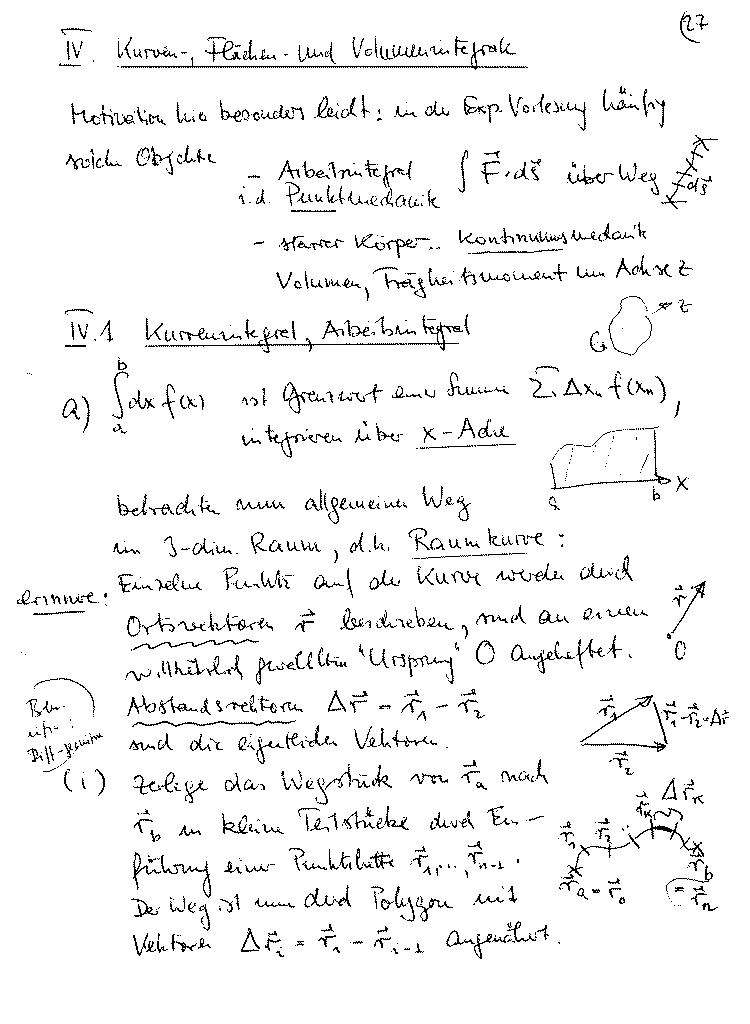 27
IV. Kurven-, Flächen- und Volumenintegrale
Motivation hier besonders leicht: in der Exp. Vorlesung häufig
solche Objekte
- Arbeitsintegral ∫ F⃗·ds⃗ über Weg
ds⃗
i.d. Punktmechanik
- starrer Körper.. Kontinuumsmechanik
Volumen, Trägheitsmoment um Achse z
z
G
IV.1 Kurvenintegral, Arbeitsintegral
a) ∫_a^b dx f(x) ist Grenzwert einer Summe Σ Δx_n f(x_n),
integrieren über x-Achse
a b x
betrachte nun allgemeinen Weg
im 3-dim. Raum, d.h. Raumkurve:
erinnere: Einzelne Punkte auf der Kurve werden durch
Ortsvektoren r⃗ beschrieben, sind an einem
willkürlich gewählten "Ursprung" O angeheftet.
r⃗
O
Abstandsvektoren Δr⃗ = r⃗_1 - r⃗_2
sind die eigentlichen Vektoren.
r⃗_1 r⃗_1-r⃗_2=Δr⃗
r⃗_2
(i) Zerlege das Wegstück von r⃗_a nach
r⃗_b in kleine Teilstücke durch Ein-
führung einer Punktkette r⃗_1,...,r⃗_{n-1}.
Der Weg ist nun durch Polygon mit
Vektoren Δr⃗_i = r⃗_i - r⃗_{i-1} angenähert.
Δr⃗_k
r⃗_k
r⃗_1 r⃗_2
r⃗_b
r⃗_a = r⃗_0
= r⃗_n